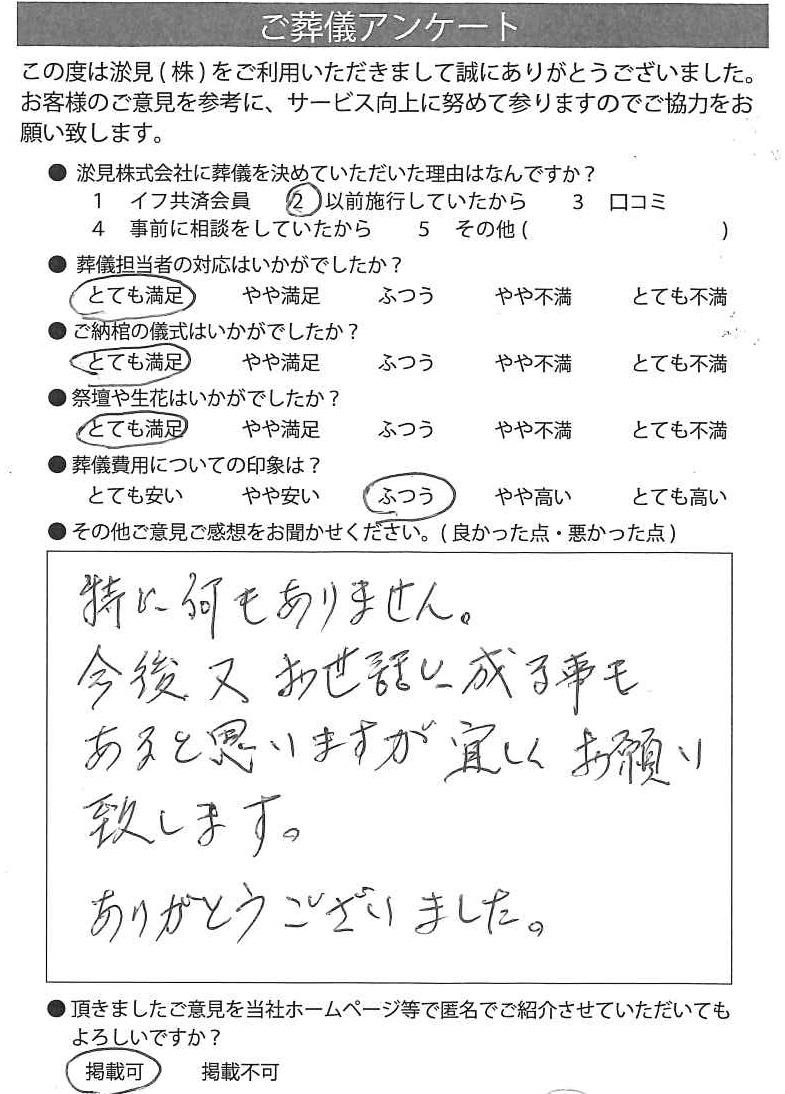 ご葬儀アンケート
この度は淤見(株)をご利用いただきまして誠にありがとうございました。
お客様のご意見を参考に、サービス向上に努めて参りますのでご協力をお
願い致します。
● 淤見株式会社に葬儀を決めていただいた理由はなんですか？
1 イフ共済会員 2 以前施行していたから 3 口コミ
4 事前に相談をしていたから 5 その他( )
● 葬儀担当者の対応はいかがでしたか？
とても満足 やや満足 ふつう やや不満 とても不満
●ご納棺の儀式はいかがでしたか？
とても満足 やや満足 ふつう やや不満 とても不満
●祭壇や生花はいかがでしたか？
とても満足 やや満足 ふつう やや不満 とても不満
●葬儀費用についての印象は？
とても安い やや安い ふつう やや高い とても高い
●その他ご意見ご感想をお聞かせください。(良かった点・悪かった点)
特に何もありません。
今後又お世話に成る事も
あると思いますが宜しくお願い
致します。
ありがとうございました。
●頂きましたご意見を当社ホームページ等で匿名でご紹介させていただいても
よろしいですか？
掲載可 掲載不可